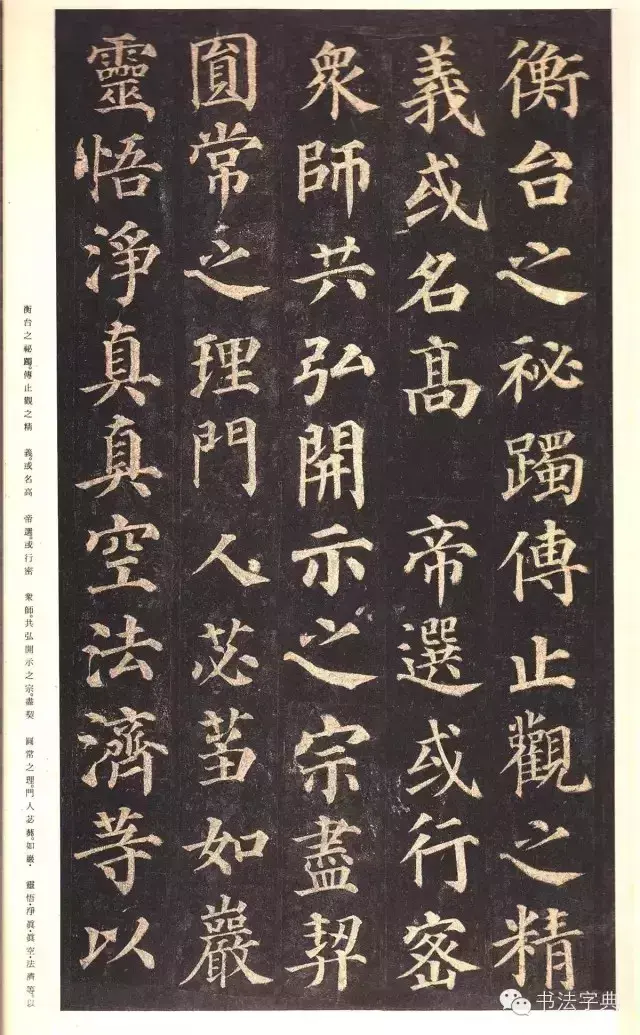 衡台之祕躅傳止觀之精
義或名高 帝選或行密
衆師共弘開示之宗盡契
圓常之理門人苾蒭如巖
靈悟淨真真空法濟等以
衡台之祕躅。傳止觀之精 義。或名高 帝選。或行密 衆師。共弘開示之宗。盡契 圓常之理。門人苾蒭。如巖・ 靈悟・淨眞・眞空・法濟等。以
书法字典